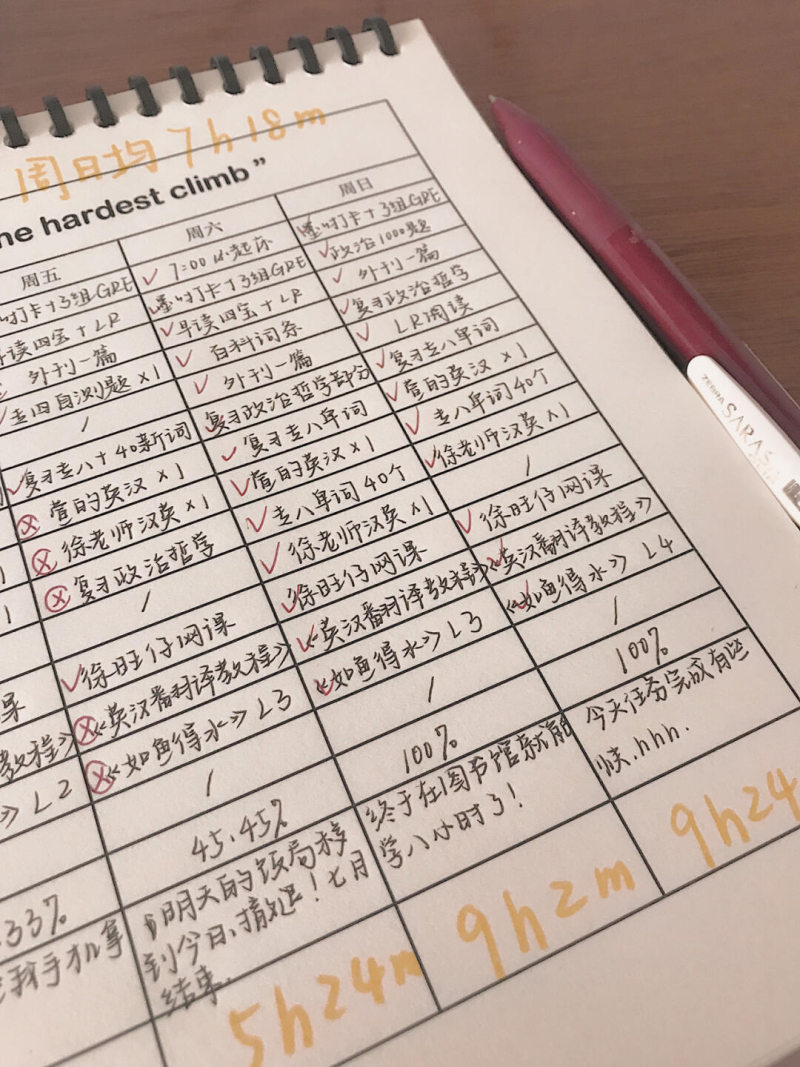 周日均 7h18m
he hardest climb”
周五
打卡+3组GRE
读四宝+LR
外刊一篇
专四自测题×1
/
复习专八+40新词
萱的英汉×1
徐老师汉英×1
复习政治哲学
/
徐旺仔网课
《英汉翻译教程》
《如鱼得水》L3
/
45.45%
明天的饭局移
到今日、搞笑！七月
结束.
5h24m
周六
7:00以起床
打卡+3组GRE
早读四宝+LR
百科词条
外刊一篇
复习政治哲学部分
复习专八单词
萱的英汉×1
专八单词40个
徐老师汉英×1
徐旺仔网课
《英汉翻译教程》
《如鱼得水》L3
/
100%
终于在图书馆就能
学八小时了！
9h2m
周日
打卡+3组GRE
政治1000题
外刊一篇
复习政治哲学
LR阅读
复习专八单词
萱的英汉×1
专八单词40个
徐老师汉英×1
/
徐旺仔网课
《英汉翻译教程》
《如鱼得水》L4
/
100%
今天任务完成有些
快.hhh.
9h24
课
教程》
》L2
.33%
手机拿
ZEBRA SARASA